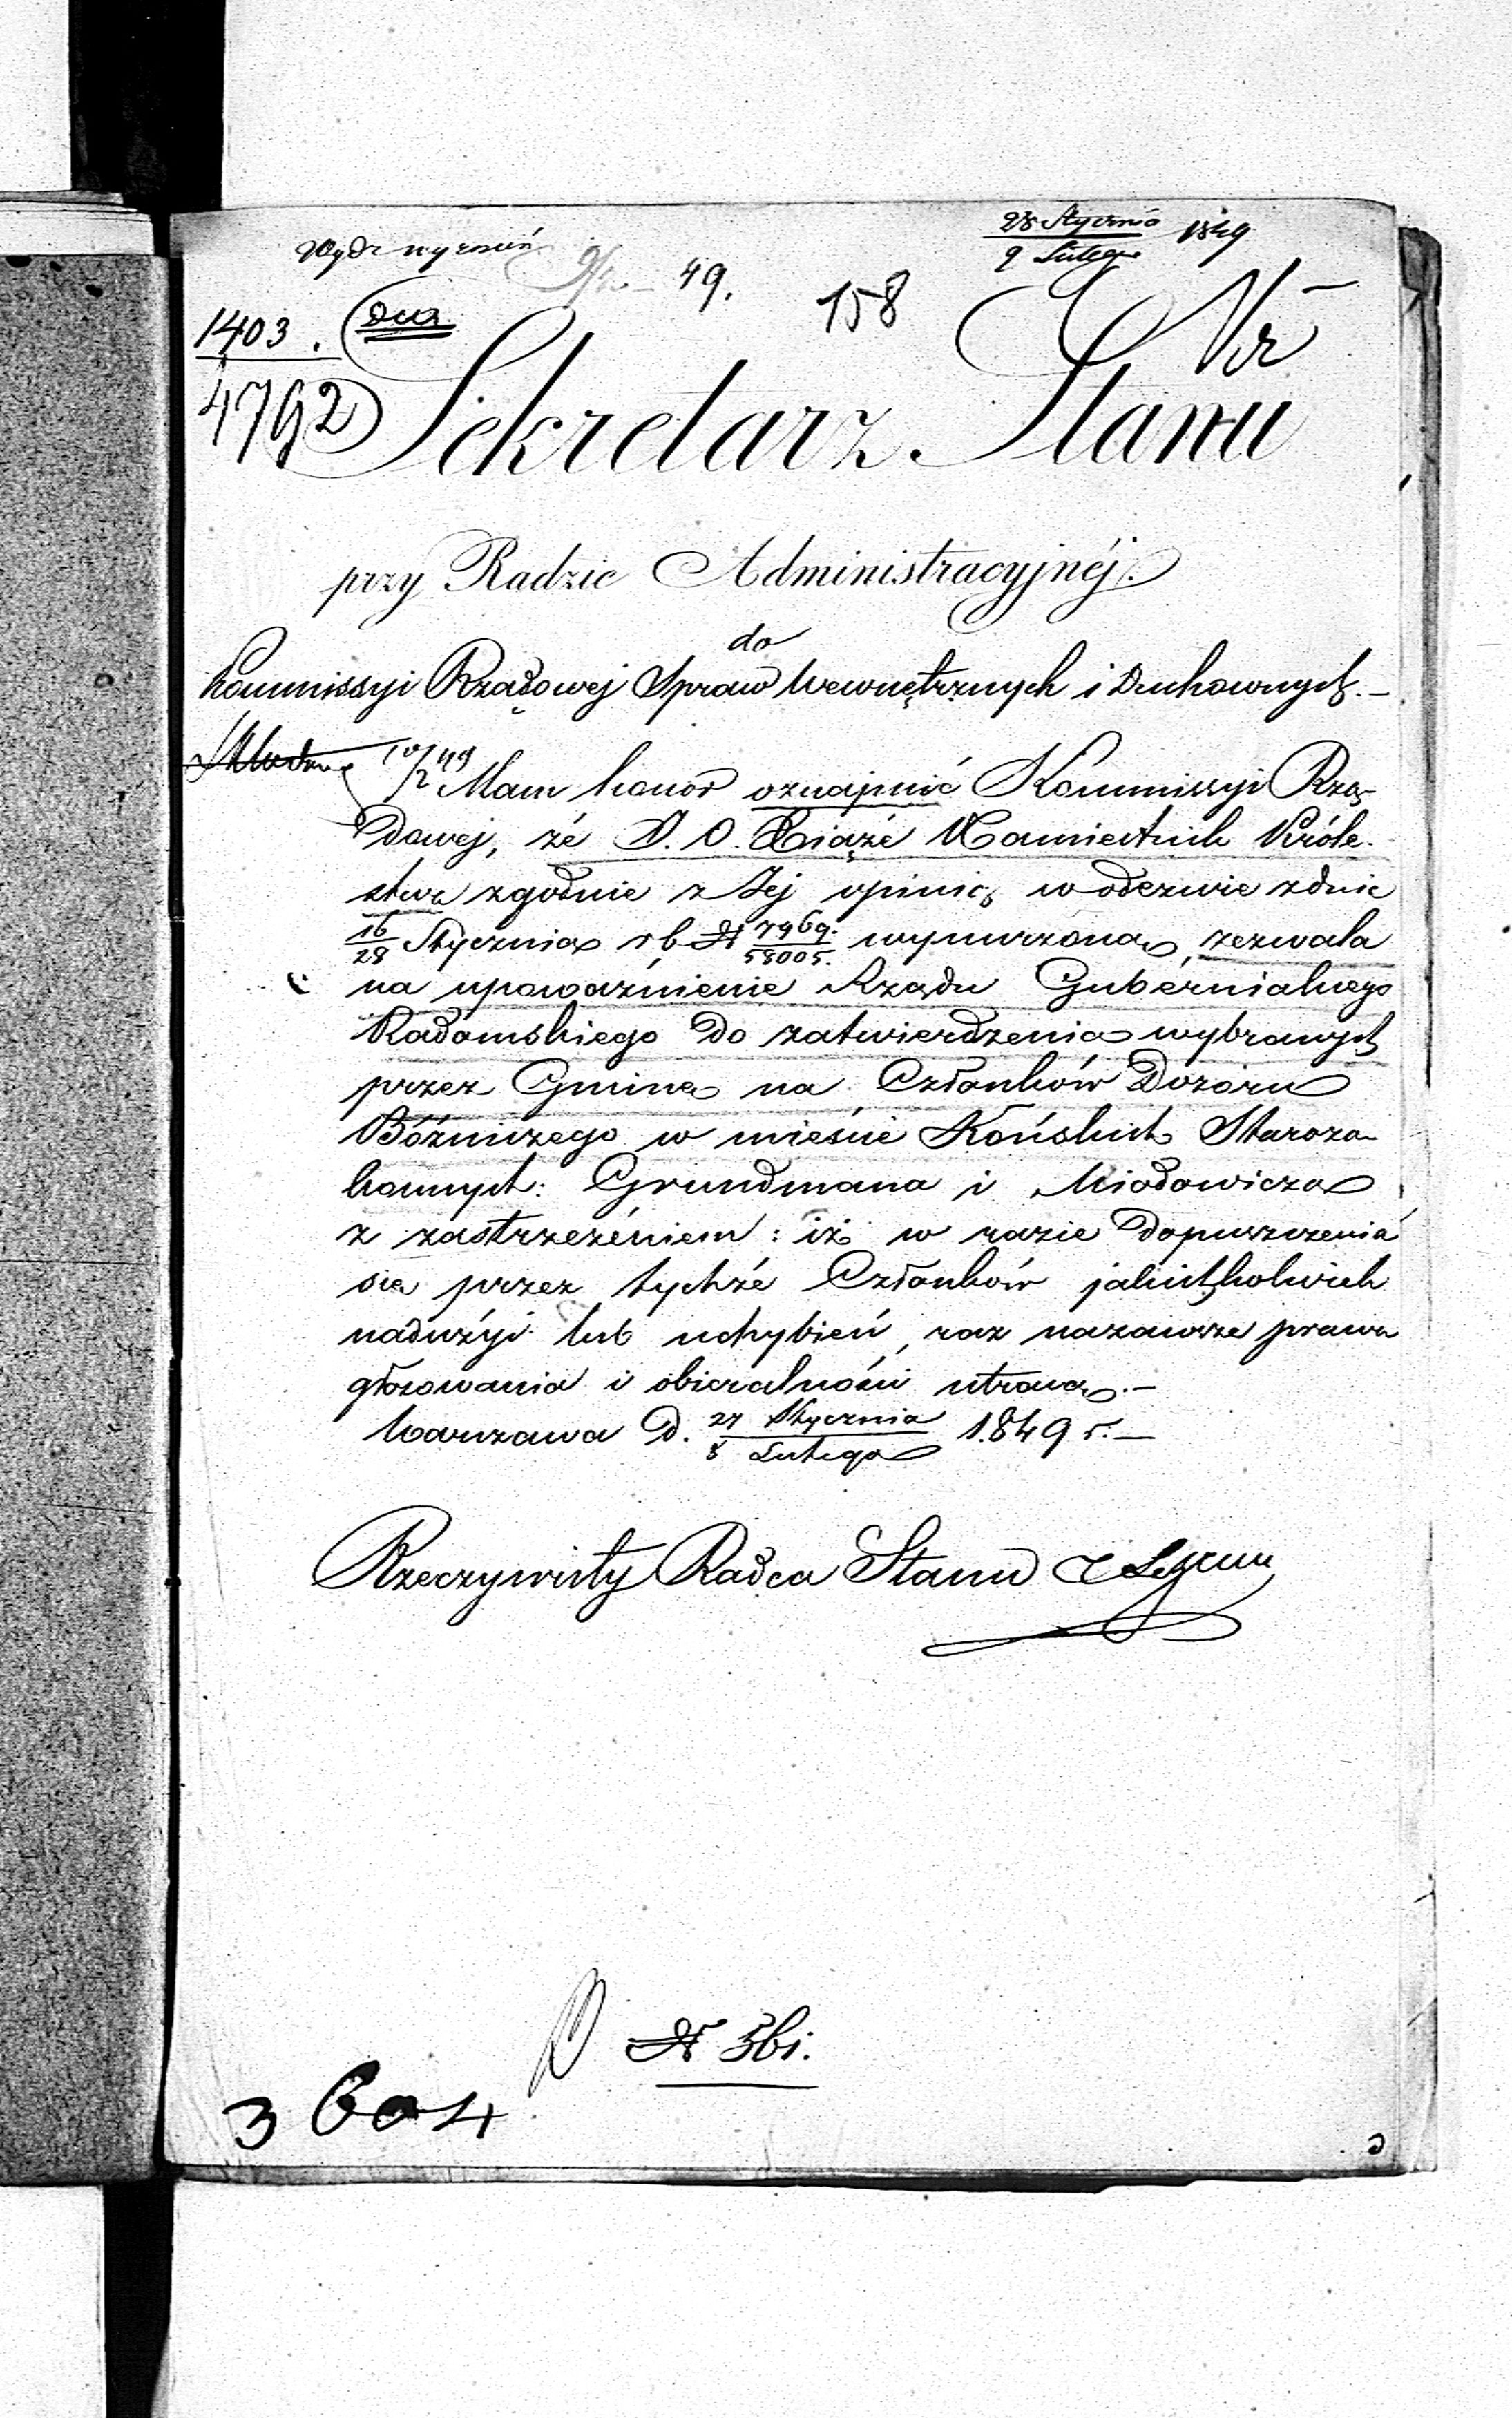 28 Stycznia / 9 Lutego 1849
Wydz wyznań
49.
158
1403.
4792
Sekretarz Stanu
przy Radzie Administracyjnéj.
do
Kommissyi Rządowej Spraw Wewnętrznych i Duchownych.—
10/2 49
Mam honor oznajmić Kommissyi Rzą-
dowej, że J. O. Xiąże Namiestnik Króle-
stwa zgodnie z Jej opinią w odezwie z dnia
16/28 Stycznia r b № 7969/58005. wynurzoną, zezwala
na upoważnienie Rządu Gubernialnego
Radomskiego do zatwierdzenia wybranych
przez Gminę na Członków Dozoru
Bóżniczego w mieście Końskich Staroza-
konnych: Grundmana i Miodowicza
z zastrzeżeniem: iż w razie dopuszczenia
się przez tychże Członków jakichkolwiek
nadużyi lub uchybień, raz nazawsze prawa
głosowania i obieralności utracą.—
Warszawa d. 27 Stycznia / 8 Lutego 1849 r.—
Rzeczywisty Radca Stanu
№ 361.
3604